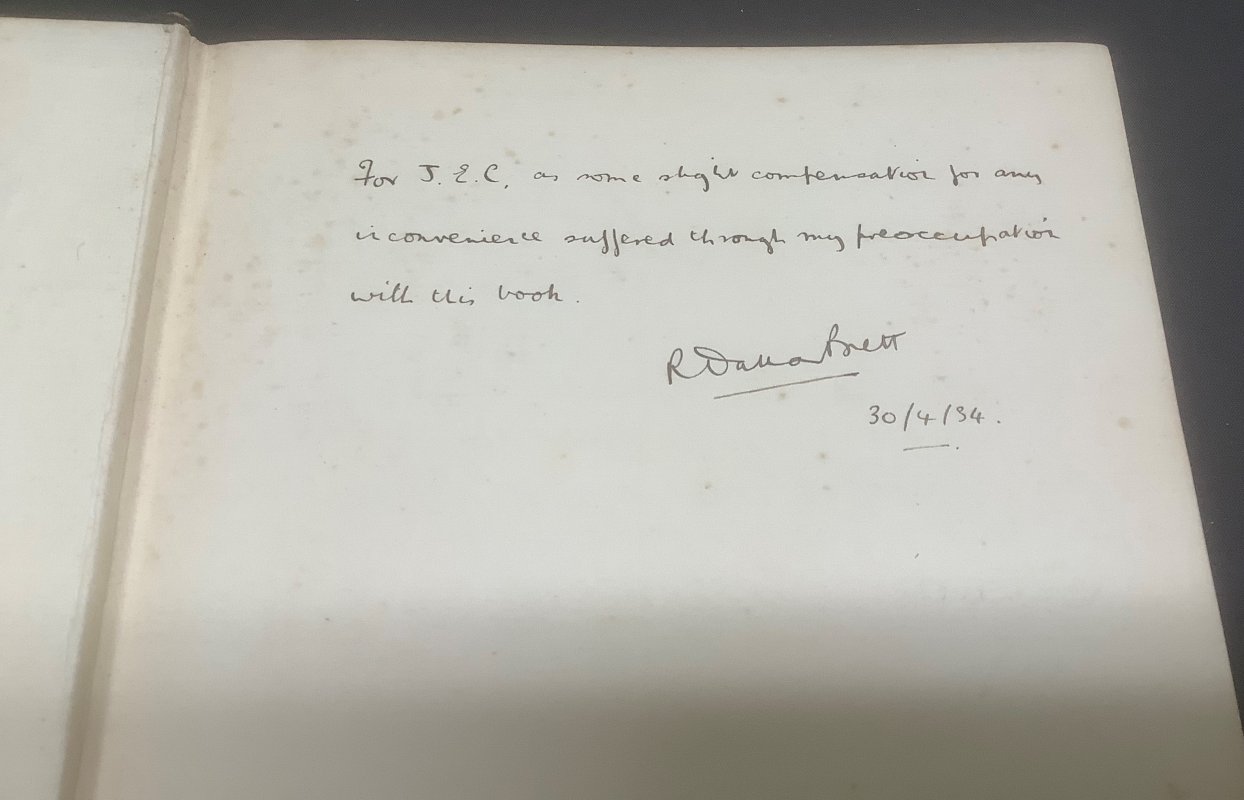 For J.E.C. as some slight compensation for any
inconvenience suffered through my preoccupation
with this book.
R Dallas Brett
30/4/34.